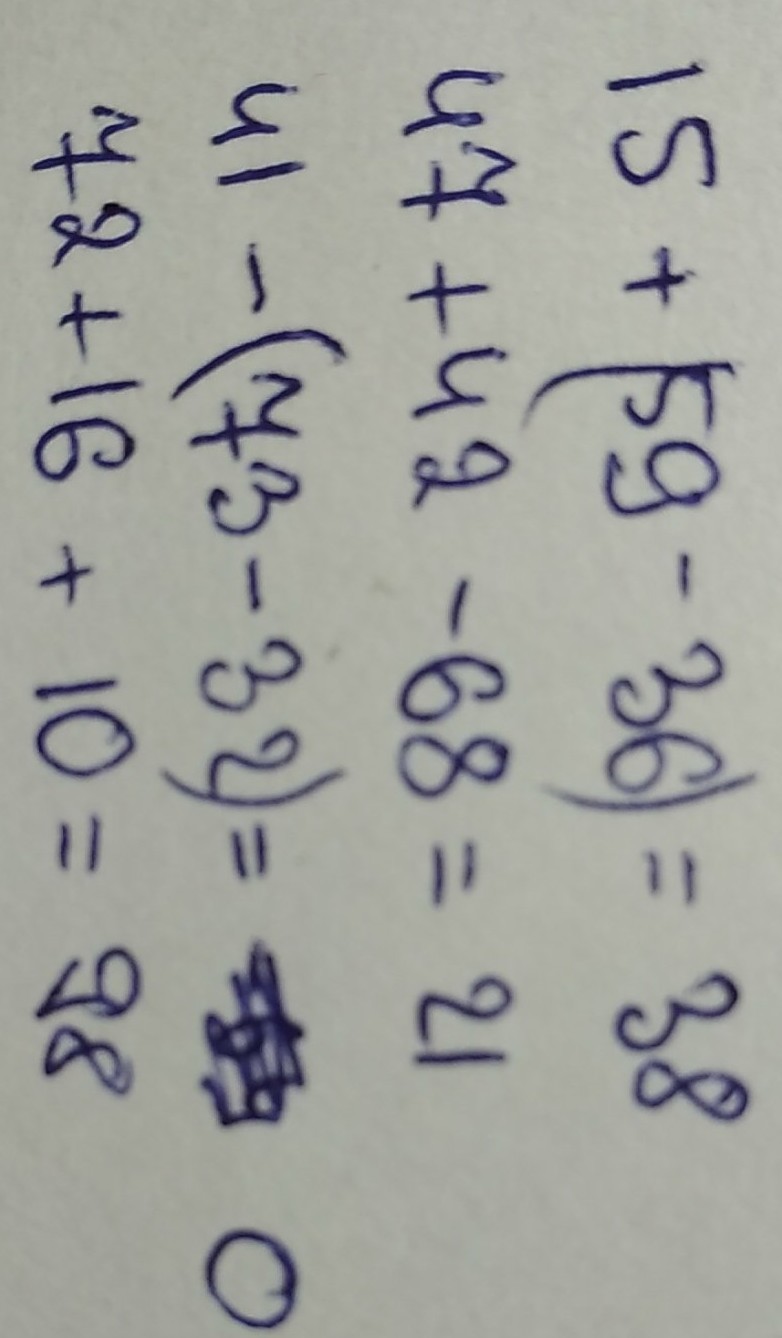 15 + (59 - 36) = 38
47 + 42 - 68 = 21
41 - (73 - 32) = 0
72 + 16 + 10 = 98